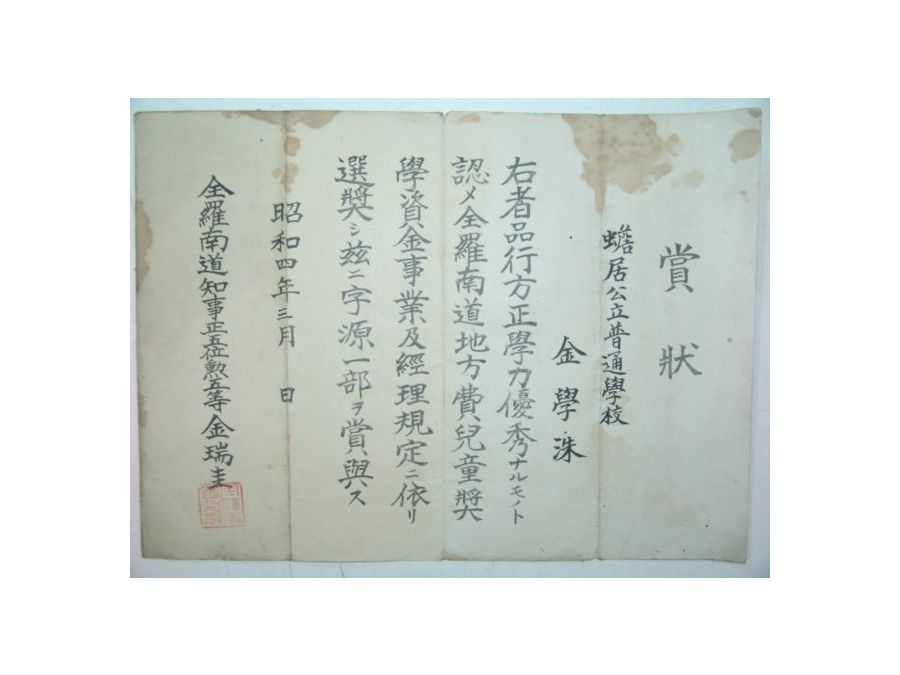 賞狀
蟾居公立普通學校
金學洙
右者品行方正學力優秀ナルモノト
認メ全羅南道地方費兒童奬
學資金事業及經理規定ニ依リ
選奬シ玆ニ字源一部ヲ賞與ス
昭和四年三月 日
全羅南道知事正五位勲五等金瑞圭